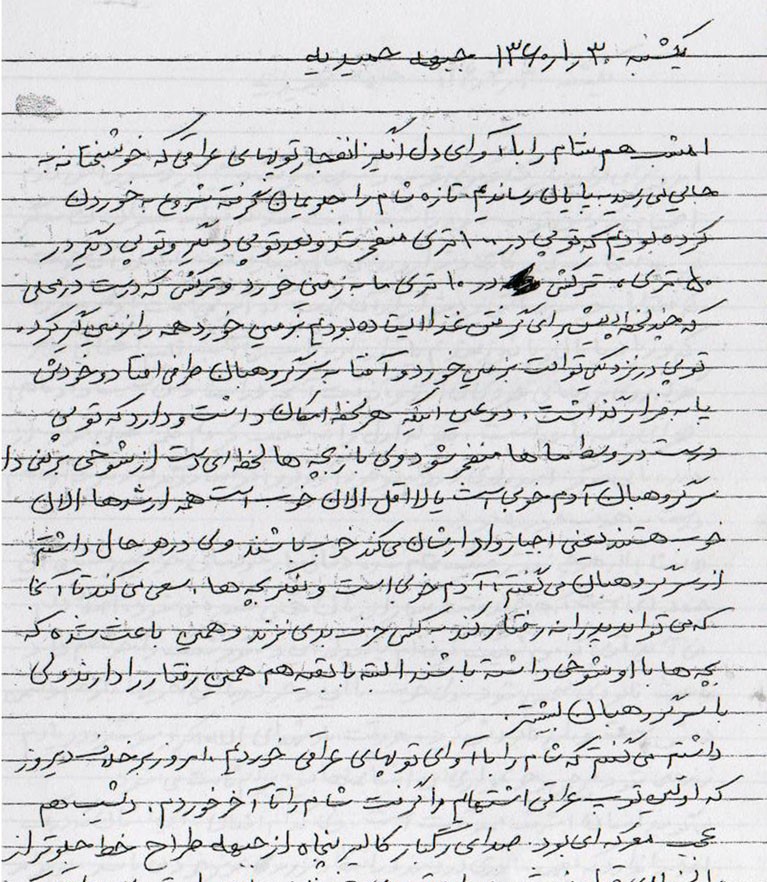 یکشنبه ۱۳۶۰/۱/۳۰ جبهه حمیدیه
امشب هم شام را با آوای دل انگیز انفجار توپهای عراقی که خوشبختانه به
جایی نمی رسید بپایان رساندیم. تازه شام را جلویمان گرفته شروع به خوردن
کرده بودیم که توپی در ۱۰۰ متری منفجر شد و بعد توپی دیگر و توپی دیگر در
۵۰ متری، ترکش در ۱۰ متری ما به زمین خورد و ترکش که درست در محلی
که چند لحظه پیش برای گرفتن غذا ایستاده بودیم بزمین خورد همه را زمین گیر کرد.
توپی در نزدیکی توالت بزمین خورد و آفتابه سرگروهبان طرفی افتاد و خودش
پا به فرار گذاشت. در عین اینکه هر لحظه امکان داشت و دارد که توپی
درست در وسط ماها منفجر شود ولی باز بچه ها لحظه ای دست از شوخی برنمی دا
سرگروهبان آدم خوبی است یا لااقل الان خوب است همه ارشدها الان
خوب هستند یعنی اجبار وادارشان می کند خوب باشند ولی در هر حال داشتم
از سرگروهبان می گفتم، آدم خوبی است و بفکر بچه ها، سعی می کند تا آنجا
که می تواند پدرانه رفتار کند به کسی حرف بدی نزند و همین باعث شده که
بچه ها با او شوخی داشته باشند البته با بقیه هم همین رفتار را دارند ولی
با سرگروهبان بیشتر.
داشتم می گفتم که شام را با آوای توپهای عراقی خوردیم. امروز برخلاف دیروز
که اولین توپ عراقی اشتهایم را گرفت شام را تا آخر خوردم. دیشب هم
عجب معرکه ای بود. صدای رگبار کالیبر پنجاه از جبهه طراح خط جلوتر از